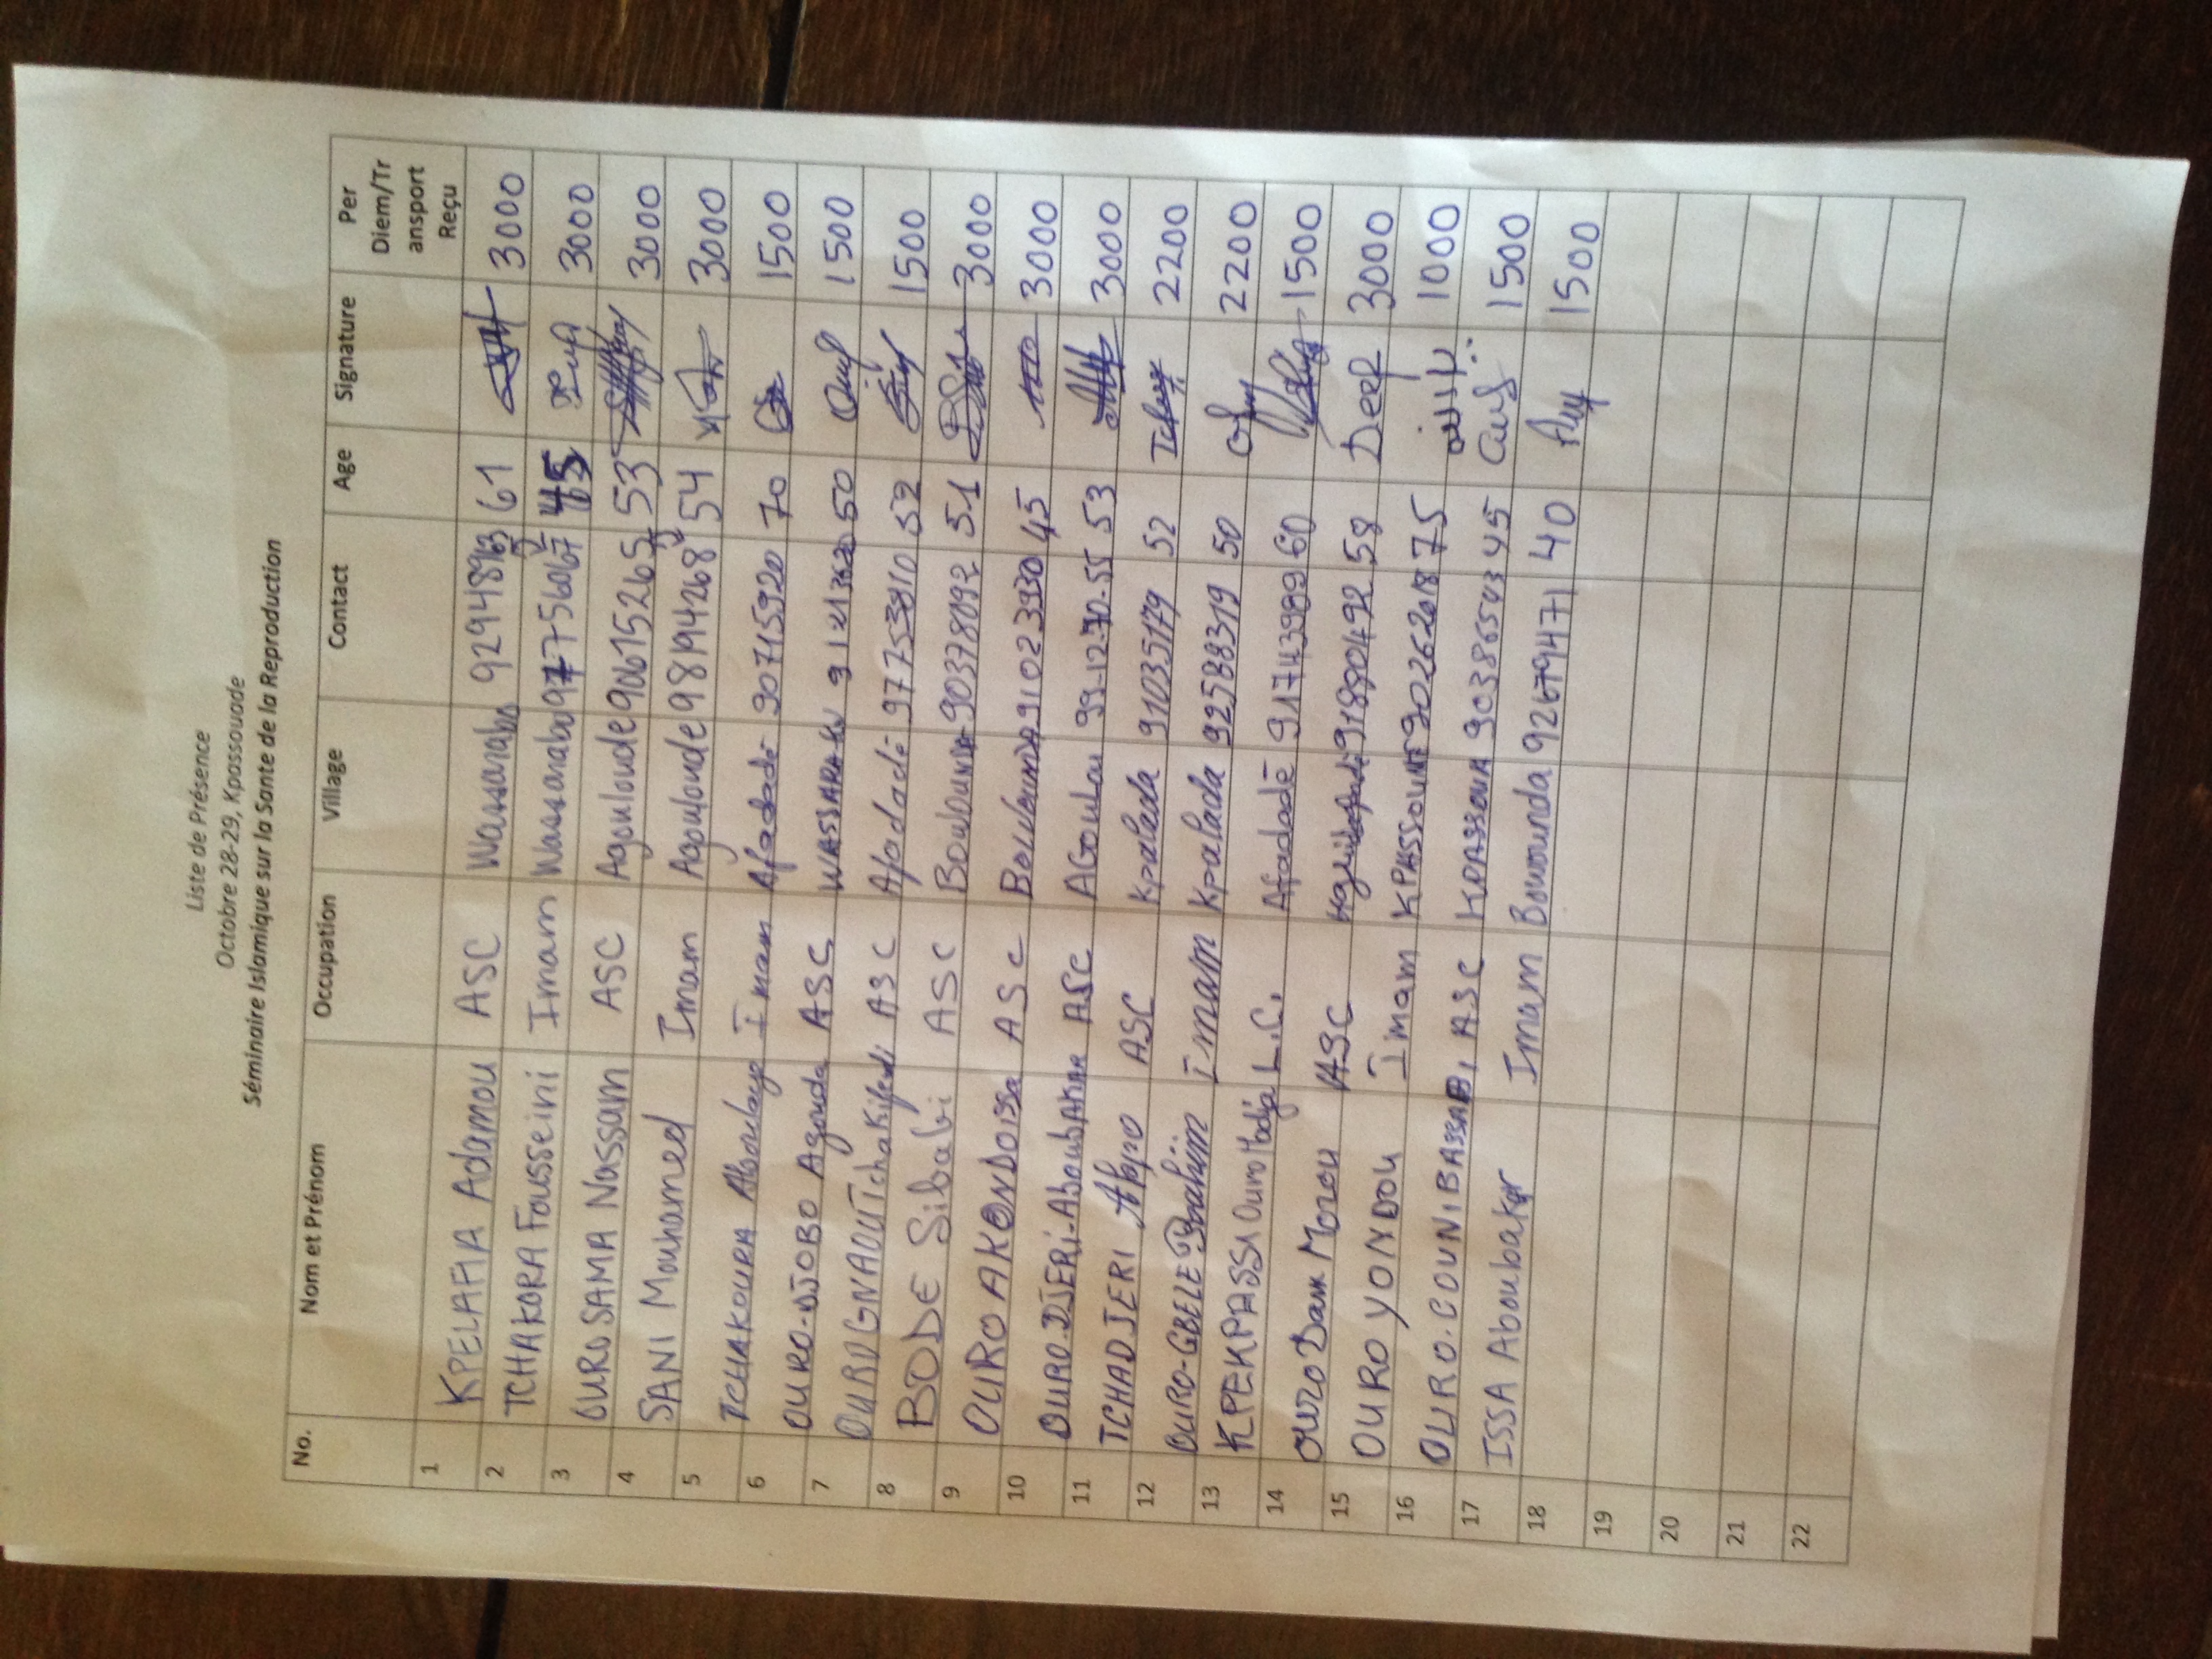 Liste de Présence
Octobre 28-29, Kpassouade
Séminaire Islamique sur la Sante de la Reproduction
No. Nom et Prénom Occupation Village Contact Age Signature Per Diem/Transport Reçu
1 KPELAFIA Adamou ASC Wassarabo 61 3000
2 TCHAKORA Fousseini Imam Wassarabo 45 3000
3 OURO SAMA Nassam ASC Agouloude 90615265 53 3000
4 SANI Mouhamed Imam Agouloude 98194268 54 3000
5 TCHAKOURA Aboulaye Imam Afadade 90715920 70 1500
6 OURO-DJOBO Agouda ASC WASSARABO 50 1500
7 OUROGNAOU ASC Afadade 97753810 52 1500
8 BODE Sibabi ASC Boulounda 90378092 51 3000
9 OURO AKONDO issa ASC Boulounda 91023930 45 3000
10 OURO.DJERI-AboubAKAR ASC AGoulou 99-12-70-55 53 3000
11 TCHADJERI ASC Kpalada 91035179 52 2200
12 OURO-GBELE Ibrahim Imam Kpalada 92588319 50 2200
13 KPEKPASSI Ouro Hodja L.C. Afadadè 91743989 60 1500
14 OURO Dam Morou ASC 58 3000
15 OURO YONDOU Imam KPASSOUADE 90262618 75 1000
16 OURO.COUNIBASSABI, ASC KPASSOUA 90386503 45 1500
17 ISSA Aboubakar Imam Bowounda 92679471 40 1500
18
19
20
21
22